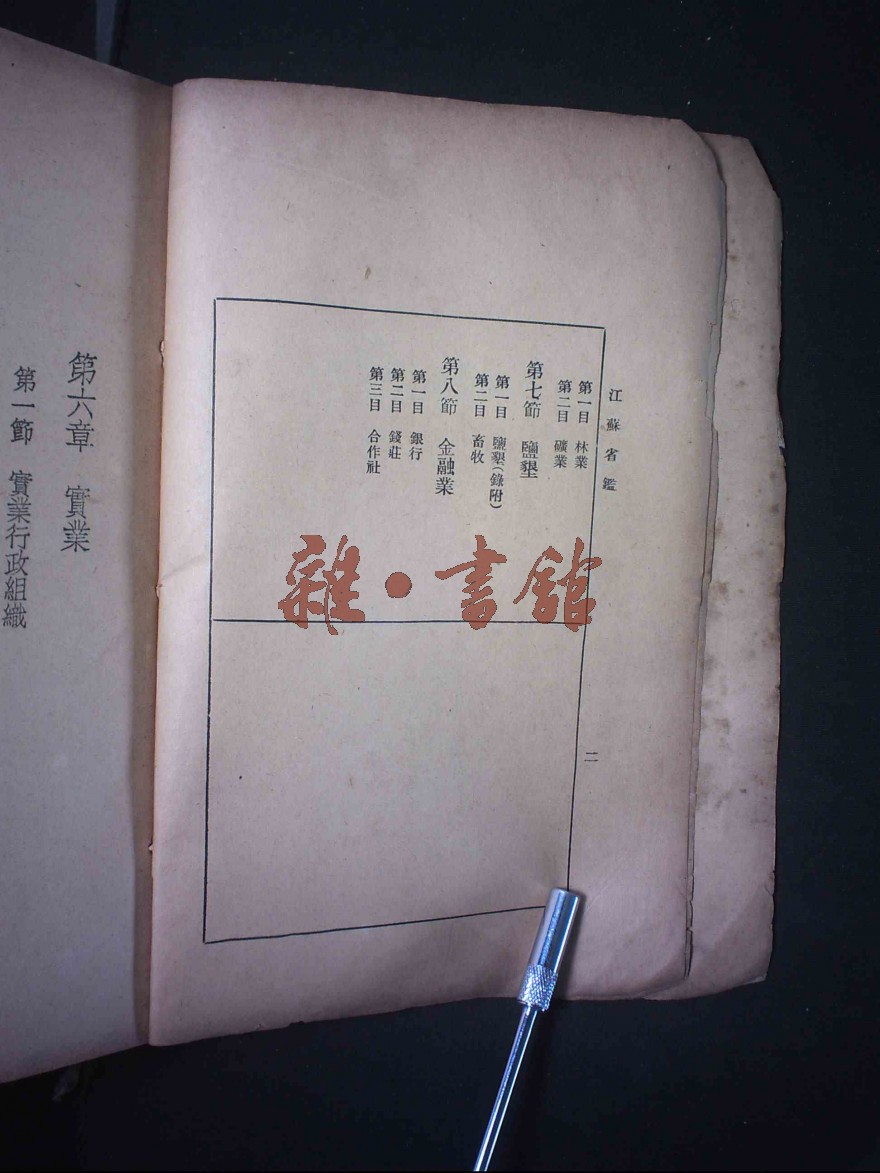 江蘇省鑑
第一目 林業
第二目 礦業
第七節 鹽墾
第一目 鹽墾(錄附)
第二目 畜牧
第八節 金融業
第一目 銀行
第二目 錢莊
第三目 合作社
二
第六章 實業
第一節 實業行政組織
雜·書館